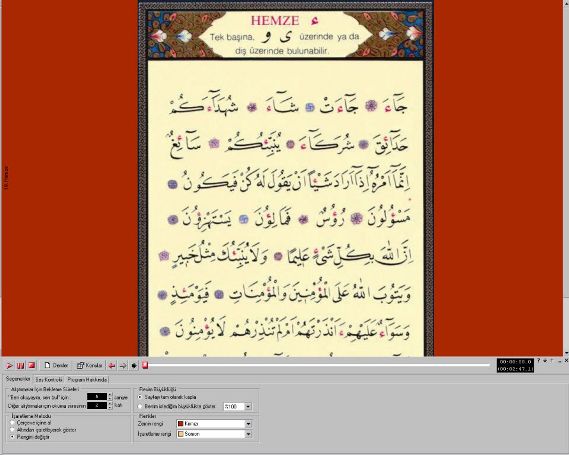 HEMZE ء
Tek başına, و ى üzerinde ya da
diş üzerinde bulunabilir.
جَاءَ جَاءَتْ شَاءَ شُهَدَاءَكُمْ
حَدَائِقَ شُرَكَاءَ يُنَبِّئُكُمْ سَائِغٌ
اِنَّمَا اَمْرُهُ اِذَا اَرَادَ شَيْئًا اَنْ يَقُولَ لَهُ كُنْ فَيَكُونُ
مَسْؤُلُونَ رُؤُسُ فَمَالِؤُنَ يَسْتَهْزِؤُنَ
اِنَّ اللّٰهَ بِكُلِّ شَيْءٍ عَلِيمًا وَلَا يُنَبِّئُكَ مِثْلُ خَبِيرٍ
وَيَتُوبَ اللّٰهُ عَلَى الْمُؤْمِنِينَ وَالْمُؤْمِنَاتِ فَيَوْمَئِذٍ
وَسَوَاءٌ عَلَيْهِمْ ءَاَنْذَرْتَهُمْ اَمْ لَمْ تُنْذِرْهُمْ لَا يُؤْمِنُونَ
Dersler Konular
00:00:00.0
00:02:47.1
Seçenekler Ses Kontrolü Program Hakkında
Alıştırmalar İçin Bekleme Süreleri
"Ben okuyayım, sen bul" için: saniye
Diğer alıştırmalar için okuma süresinin: 2 katı
İşaretleme Metodu
Çerçeve içine al
Altından işaretleyerek göster
Rengini değiştir
Resim Büyüklüğü
Sayfayı tam olarak kapla
Benim istediğim büyüklükte göster %100
Renkler
Zemin rengi Kırmızı
İşaretleme rengi Somon